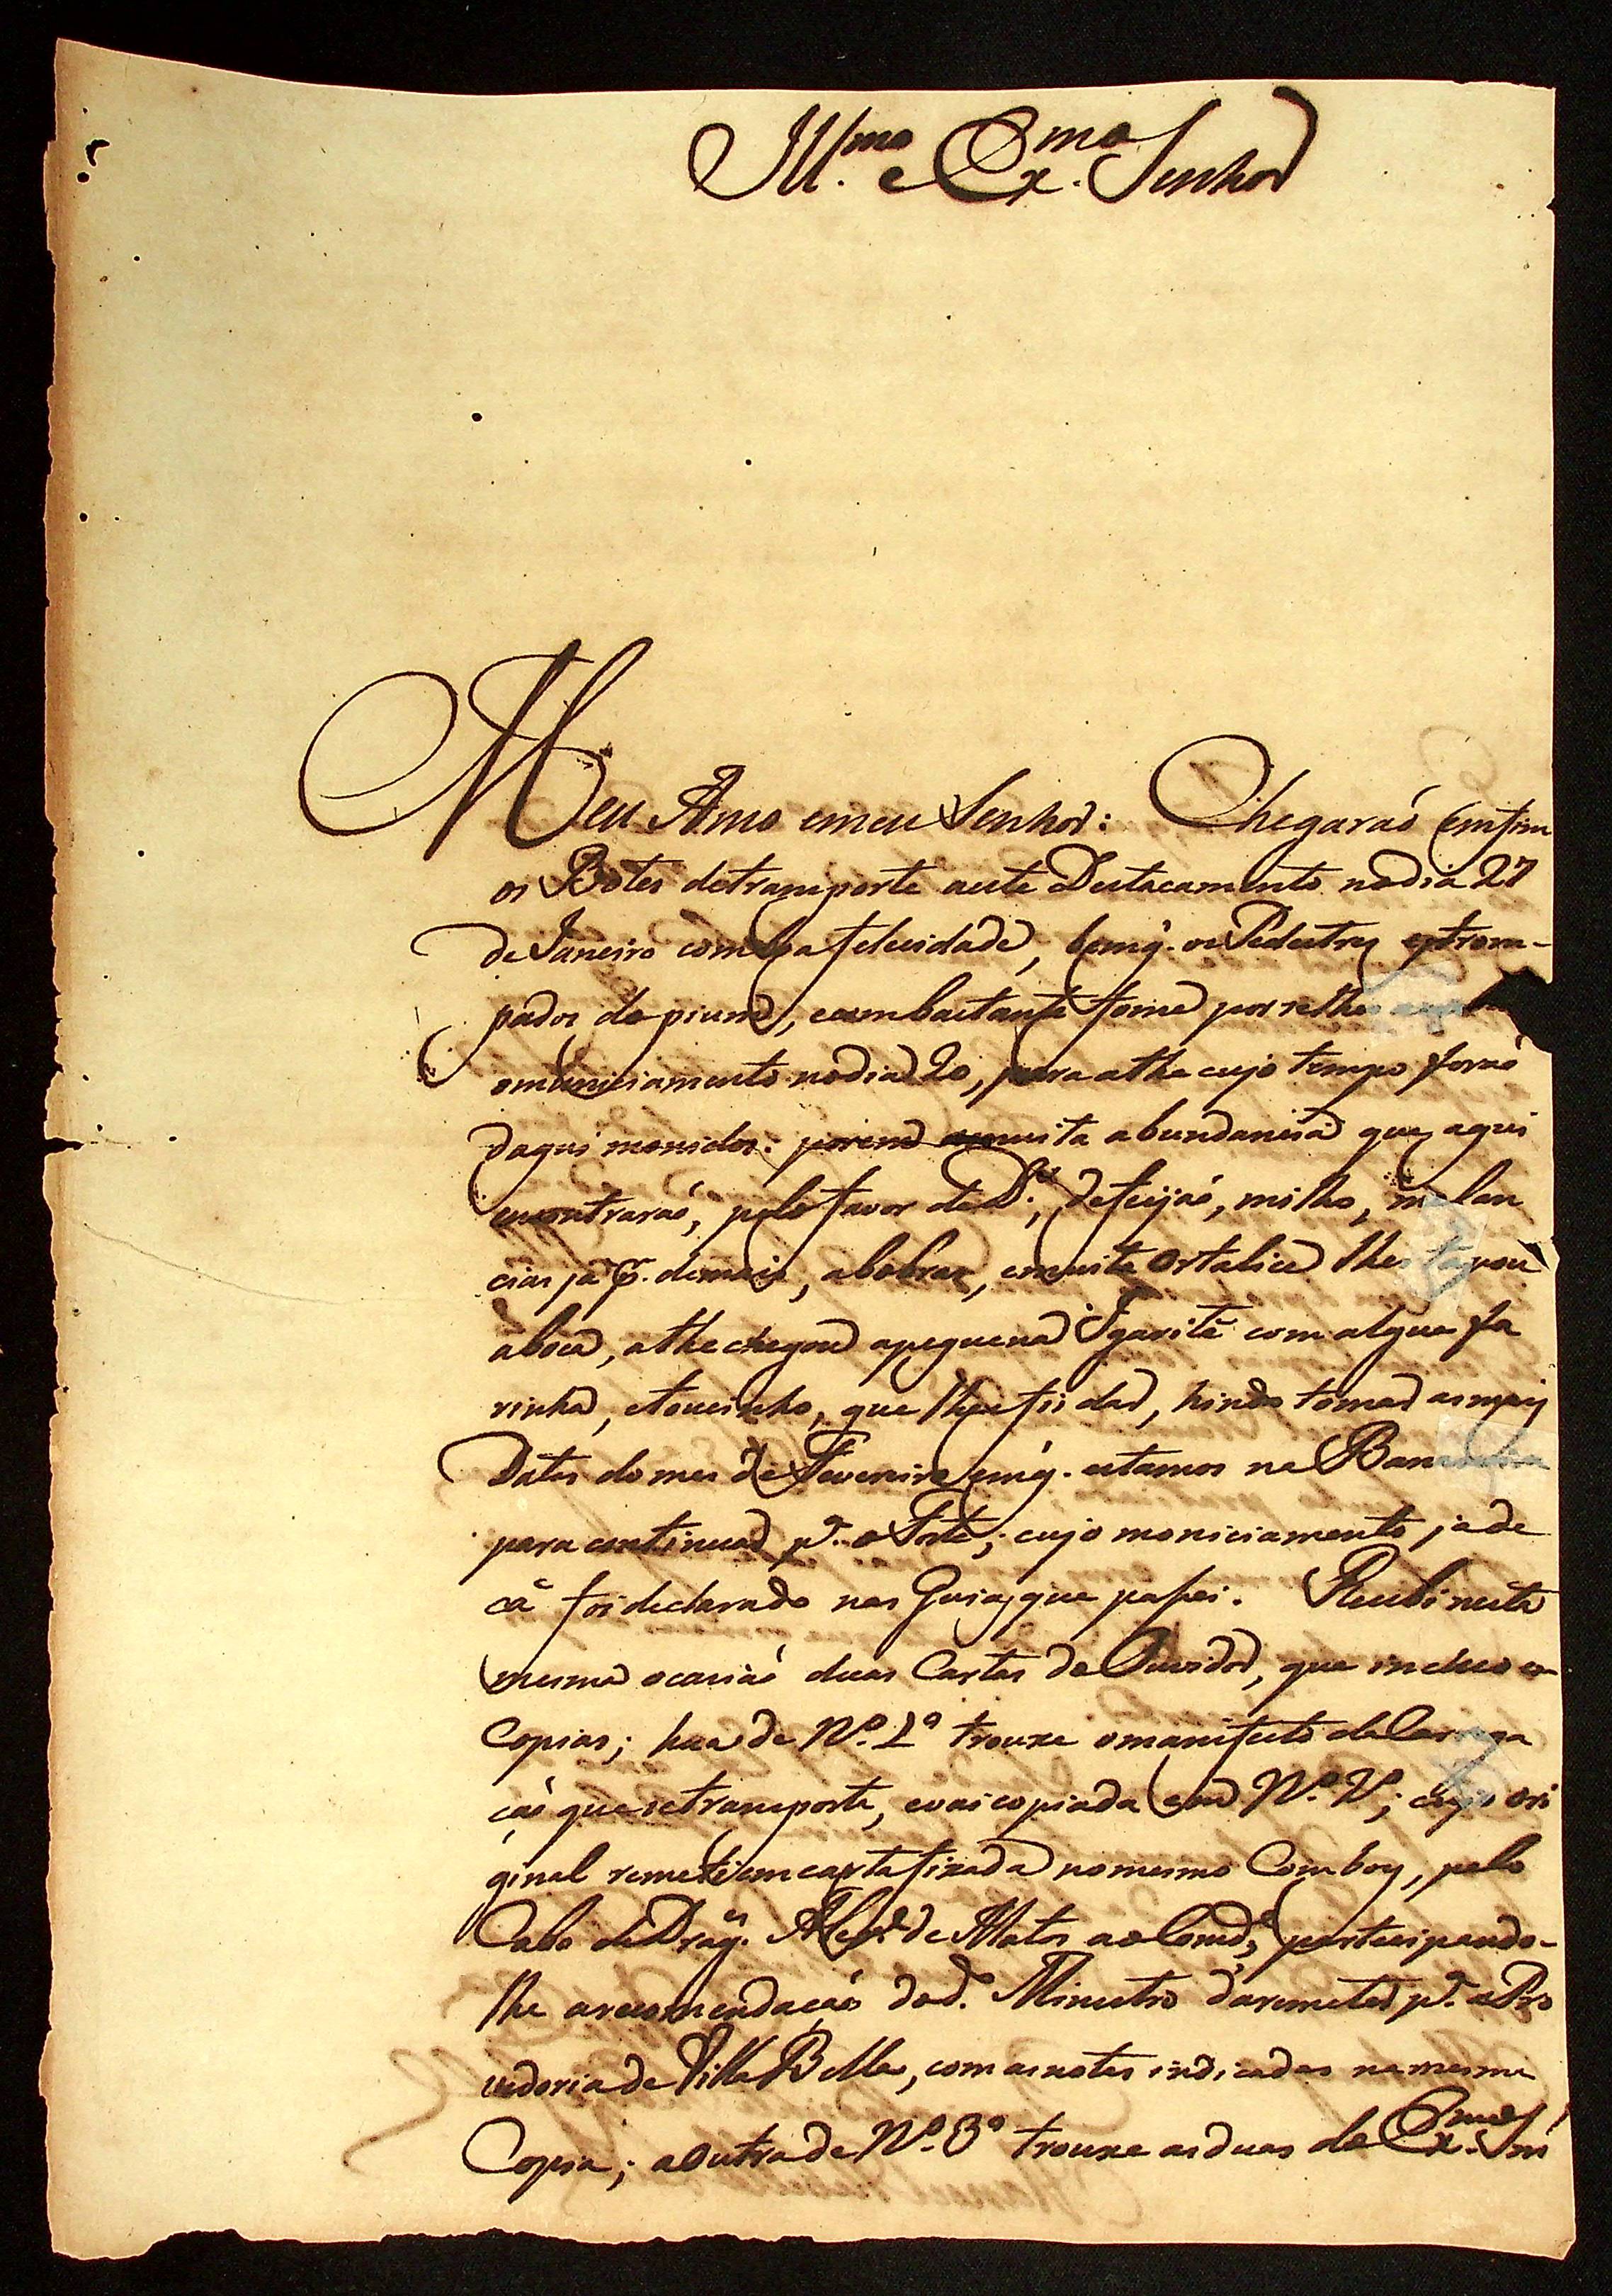 Ill.mo e Ex.mo Senhor
Meu Amo emeu Senhor: Chegaraõ emfim
os Botes detransporte aeste Destacamento nodia 27
de Janeiro comboa felecidade, bemq. os Pedestres estrom-
pados do pium, ecombastante fome por selhes
omuniciamento nodia 20, para athe cujo tempo foraõ
daqui monidos: porem amuita abundancia que aqui
encontraraõ, pelo favor de D.s, defeijaõ, milho, melan
cias já p. demais, aboboras, emuita Ortalice lhes tapou
aboca, athe chegar apequena Igarité com algua fa
rinha, etoucinho, que lhes fis dar, hindo tomar asmais
Datas do mes de Fevereiro emq. estamos na Bananeira
para continuar p.a o Forte; cujo moniciamento ja de
cá foi declarado nas Guias que pasei. Recebi nesta
mesma ocasiaõ duas Cartas do Ouvidor, que incluo em
Copias; hua de N.o 1.o trouxe omanifesto da Carrega
çaõ que setransporta, evai copiada em N.o 2.o; cujo ori
ginal remeti emcarta fixada nomesmo Comboy, pelo
Cabo de Drag. Alex.e de Matos ao Comd.e, partecipando-
lhe arecomendaçaõ do d. Ministro daremeter p.a a Pro
vedoria de Villa Bella, com asnotas indicadas namesma
Copia; aoutra de N.o 3.o trouxe asduas do Ex.mo Snr